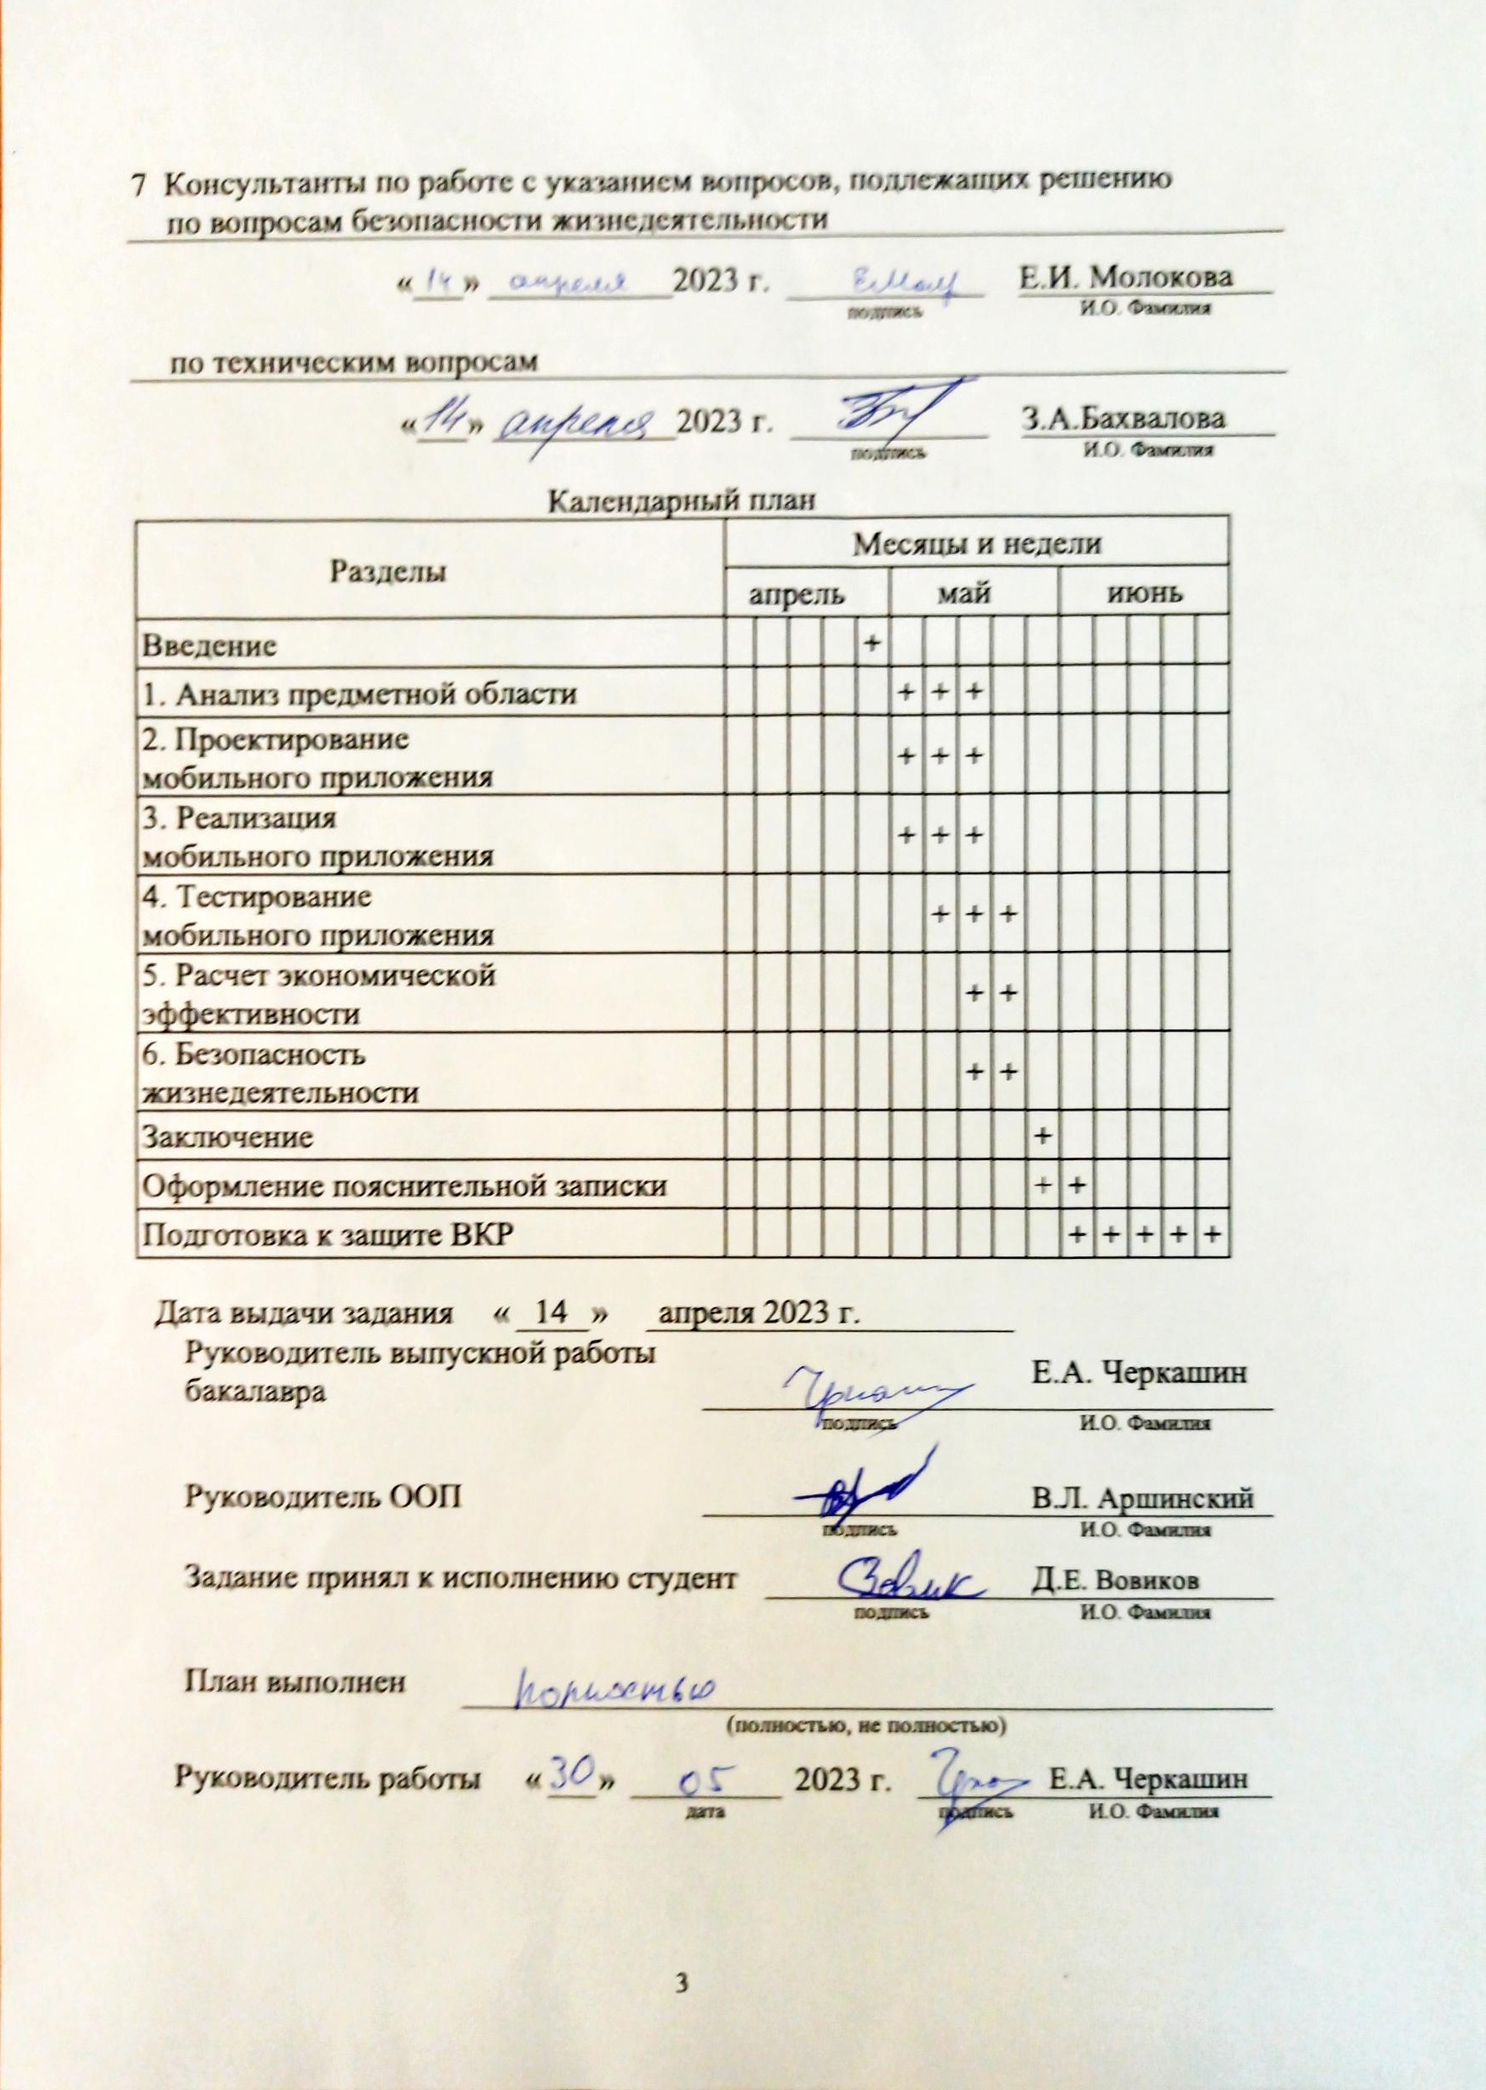 7 Консультанты по работе с указанием вопросов, подлежащих решению
по вопросам безопасности жизнедеятельности
«14» апреля 2023 г. Е.И. Молокова
подпись И.О. Фамилия
по техническим вопросам
«14» апреля 2023 г. З.А.Бахвалова
подпись И.О. Фамилия
Календарный план
Разделы Месяцы и недели
апрель май июнь
Введение +
1. Анализ предметной области + + +
2. Проектирование
мобильного приложения + + +
3. Реализация
мобильного приложения + + +
4. Тестирование
мобильного приложения + + +
5. Расчет экономической
эффективности + +
6. Безопасность
жизнедеятельности + +
Заключение +
Оформление пояснительной записки + +
Подготовка к защите ВКР + + + + +
Дата выдачи задания « 14 » апреля 2023 г.
Руководитель выпускной работы
бакалавра Е.А. Черкашин
подпись И.О. Фамилия
Руководитель ООП В.Л. Аршинский
подпись И.О. Фамилия
Задание принял к исполнению студент Д.Е. Вовиков
подпись И.О. Фамилия
План выполнен полностью
(полностью, не полностью)
Руководитель работы «30» 05 2023 г. Е.А. Черкашин
дата подпись И.О. Фамилия
3